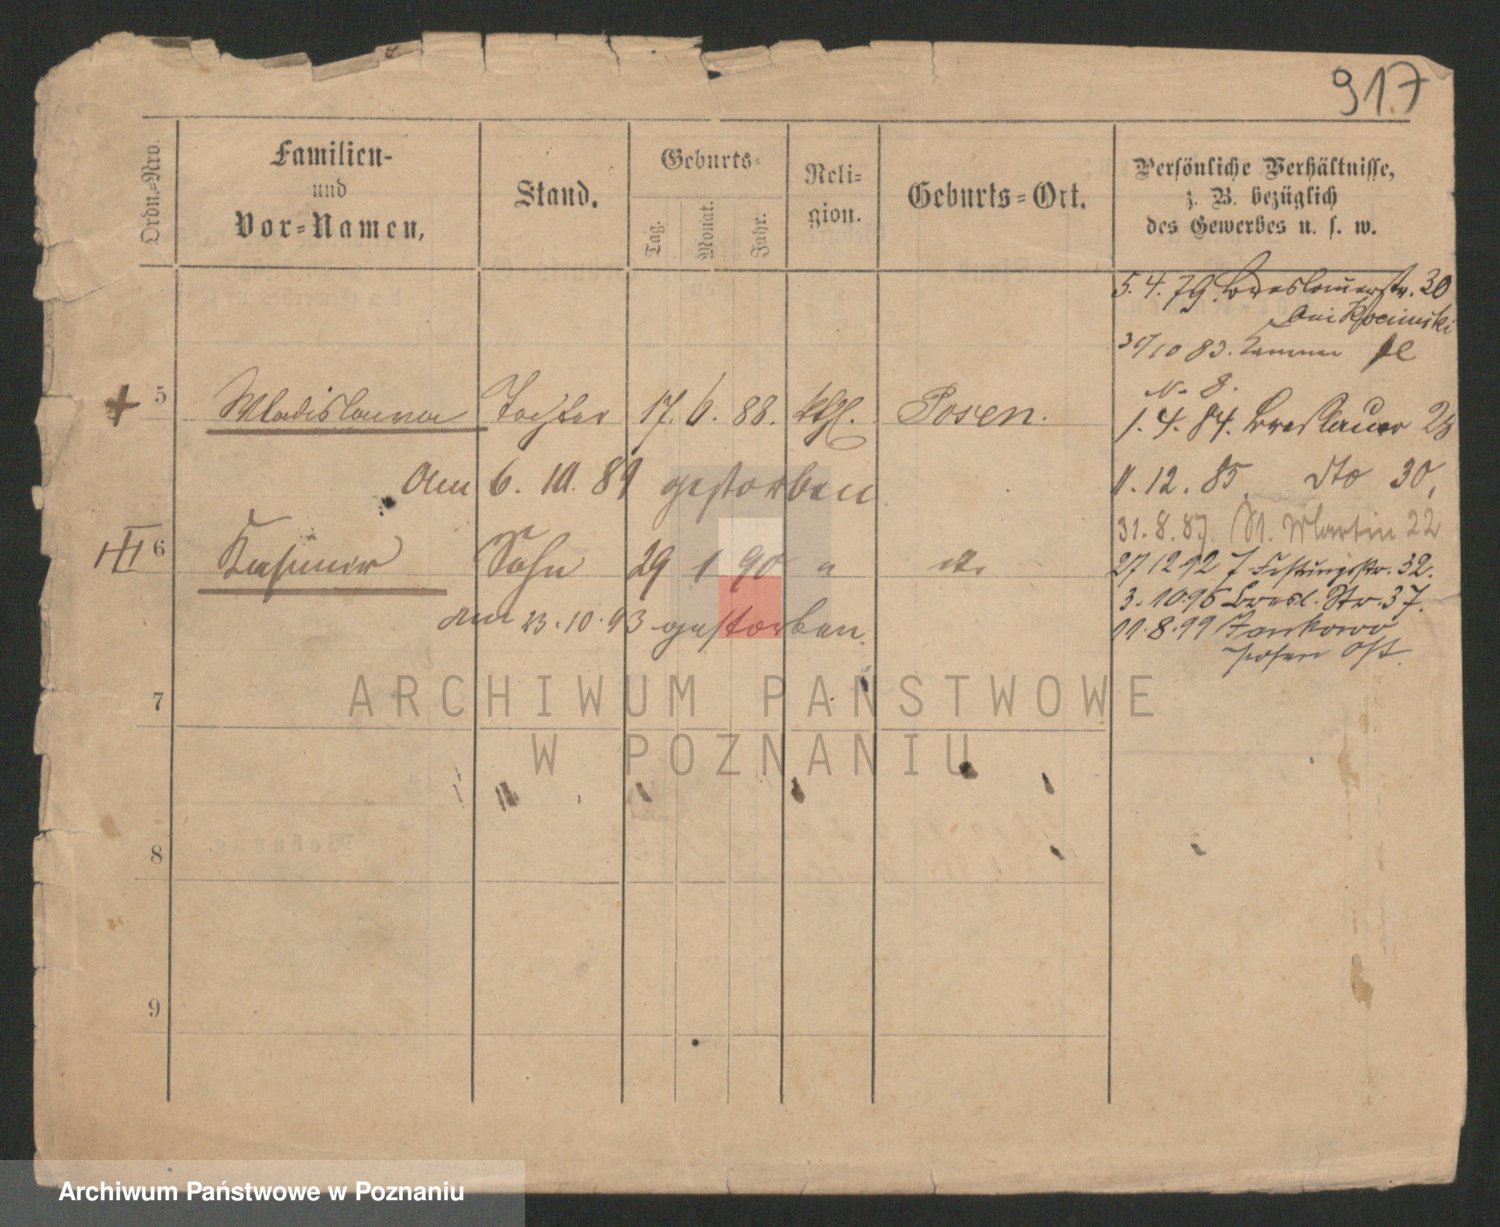 917
Ordn.=Nro.
Familien-
und
Vor=Namen.
Stand.
Geburts=
Tag.
Monat.
Jahr.
Reli=
gion.
Geburts=Ort.
Persönliche Verhältnisse,
z. B. bezüglich
des Gewerbes u. s. w.
5. 4. 79. Breslauerstr. 30
bei
10 83.
N. 8.
5 Wladislawa Tochter 17. 6. 88. kth. Posen.
1. 4. 84. Breslauer
am 6. 10. 89 gestorben
11. 12. 85. dto 30,
31. 8. 87. St. Martin 22
6 Kasimir Sohn 29 1 90 " dt.
27 12 92 Festungsstr. 32.
3. 10 96 Bresl. Str. 37.
am 23. 10. 93 gestorben.
11. 8. 99 Jankowo
Posen Ost.
7
8
9
ARCHIWUM PAŃSTWOWE
W POZNANIU
Archiwum Państwowe w Poznaniu